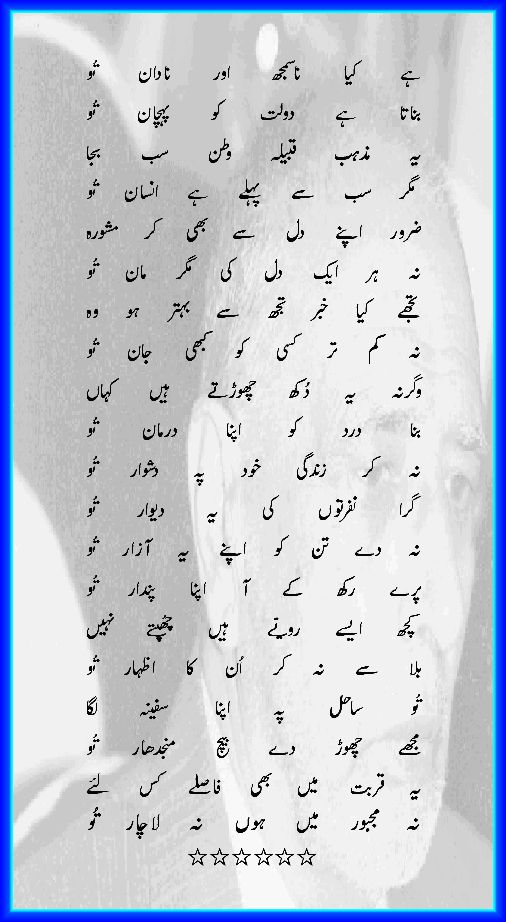 ہے کیا ناسمجھ اور نادان تُو
بناتا ہے دولت کو پہچان تُو
یہ مذہب قبیلہ وطن سب بجا
مگر سب سے پہلے ہے انسان تُو
ضرور اپنے دل سے بھی کر مشورہ
نہ ہر ایک دل کی مگر مان تُو
تجھے کیا خبر تجھ سے بہتر ہو وہ
نہ کم تر کسی کو کبھی جان تُو
وگرنہ یہ دُکھ چھوڑتے ہیں کہاں
بنا درد کو اپنا درمان تُو
نہ کر زندگی خود پہ دشوار تُو
گرا نفرتوں کی یہ دیوار تُو
نہ دے تن کو اپنے یہ آزار تُو
پرے رکھ کے آ اپنا پندار تُو
کچھ ایسے رویّے ہیں چھپتے نہیں
بلا سے نہ کر اُن کا اظہار تُو
تُو ساحل پہ اپنا سفینہ لگا
مجھے چھوڑ دے بیچ منجدھار تُو
یہ قربت میں بھی فاصلے کس لئے
نہ مجبور میں ہوں نہ لاچار تُو
☆☆☆☆☆☆